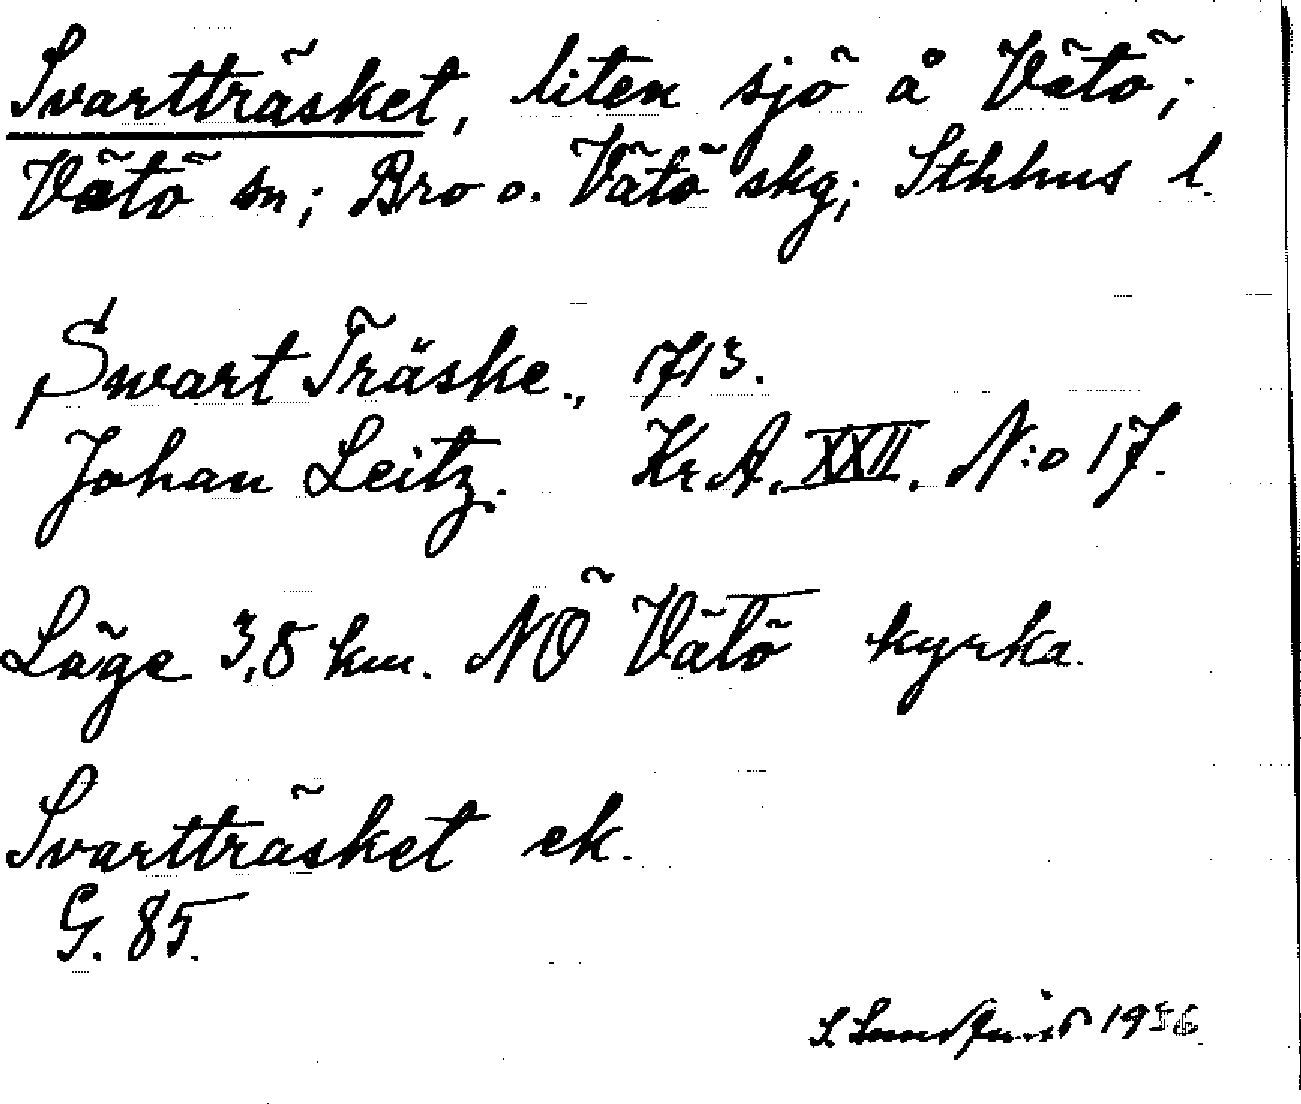 Svartträsket, liten sjö å Vätö;
Vätö sn; Bro o. Vätö skg; Sthlms l.
Swart Träske., 1713.
Johan Leitz. Kr.A. XXII. N:o 17.
Läge 3,8 km. NÖ Vätö kyrka.
Svartträsket ek.
G. 85.
S Lundquist 1956